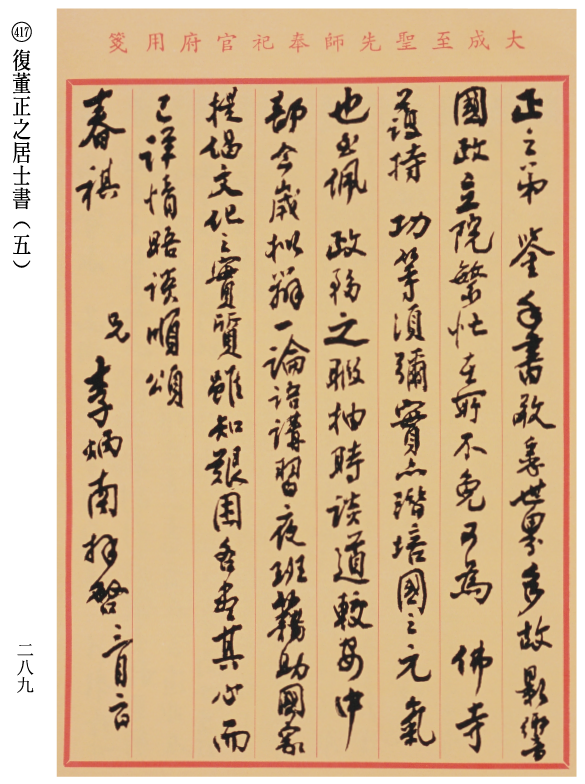 大成至聖先師奉祀官府用箋
正之弟 鑒手書敬悉世界多故影響
國政立院繁忙在所不免可為 佛寺
護持 功等須彌實亦潛培國之元氣
也至佩 政務之暇抽時談道較安中
部今歲拟辦一論語講習夜班藉助國家
提倡文化之實質雖知艱困各盡其心而
已詳情晤談順頌
春祺
兄 李炳南拜啓
417 復董正之居士書(五)
二八九